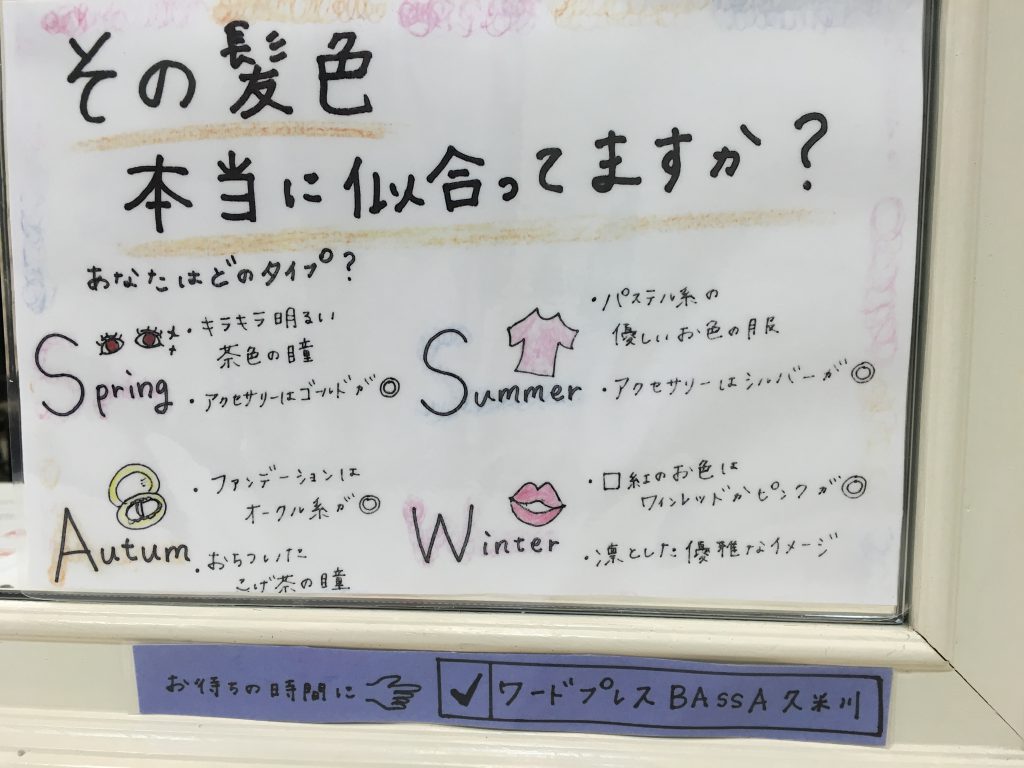 その髪色
本当に似合ってますか？
あなたはどのタイプ？
Spring
・キラキラ明るい
茶色の瞳
・アクセサリーはゴールドが◎
Summer
・パステル系の
優しいお色の服
・アクセサリーはシルバーが◎
Autum
・ファンデーションは
オークル系が◎
・おちついた
こげ茶の瞳
Winter
・口紅のお色は
ワインレッドかピンクが◎
・凛とした優雅なイメージ
お待ちの時間に ワードプレスBASSA久米川